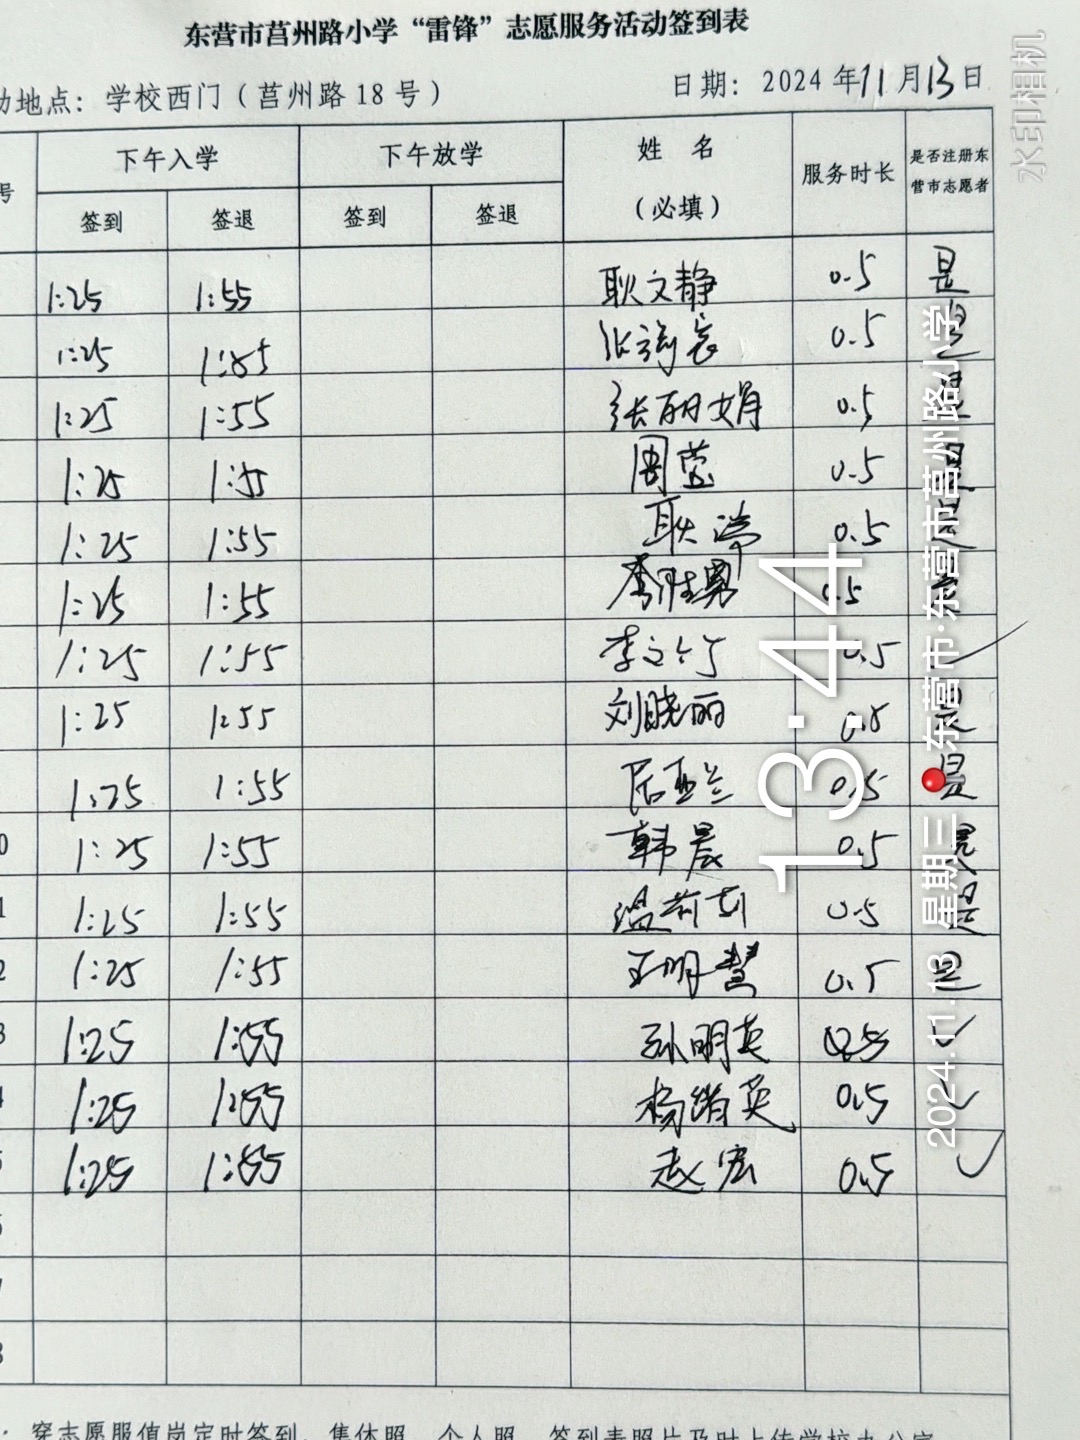 东营市莒州路小学“雷锋”志愿服务活动签到表
动地点：学校西门（莒州路18号） 日期：2024年11月13日
号 下午入学 下午放学 姓 名（必填） 服务时长 是否注册东营市志愿者
签到 签退 签到 签退
1:25 1:55 耿文静 0.5 是
1:25 1:55 0.5 是
1:25 1:55 张丽娟 0.5 是
1:25 1:55 周莹 0.5 是
1:25 1:55 耿 0.5 是
1:25 1:55 李胜男 0.5
1:25 1:55 李文 0.5 ✓
1:25 1:55 刘晓丽 0.5 是
1:25 1:55 亚兰 0.5 是
0 1:25 1:55 韩晨 0.5 是
1 1:25 1:55 温莉莉 0.5 是
2 1:25 1:55 王明慧 0.5 是
3 1:25 1:55 孙明英 0.5 ✓
4 1:25 1:55 杨绪英 0.5 ✓
5 1:25 1:55 赵宏 0.5 ✓
6
7
8
：穿志愿服值岗定时签到，集体照、个人照、签到表照片及时上传学校办公室
水印相机
13:44
2024.11.13 星期三 东营市·东营市莒州路小学